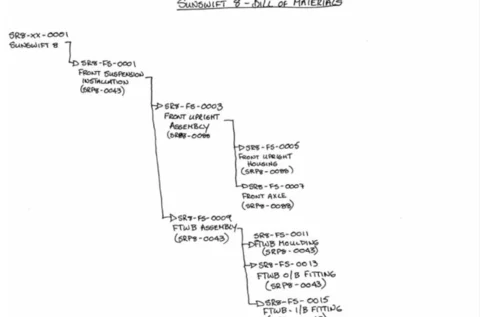 SUNSWIFT 8 - BILL OF MATERIALS
SR8-XX-0001
SUNSWIFT 8
SR8-FS-0001
FRONT SUSPENSION
INSTALLATION
(SRP8-0043)
SR8-FS-0003
FRONT UPRIGHT
ASSEMBLY
SR8-FS-0005
FRONT UPRIGHT
HOUSING
(SRP8-0088)
SR8-FS-0007
FRONT AXLE
(SRP8-0088)
SR8-FS-0009
FTWB ASSEMBLY
(SRP8-0043)
SR8-FS-0011
FTWB MOULDING
(SRP8-0043)
SR8-FS-0013
FTWB O/B FITTING
(SRP8-0043)
SR8-FS-0015
FTWB - I/B FITTING